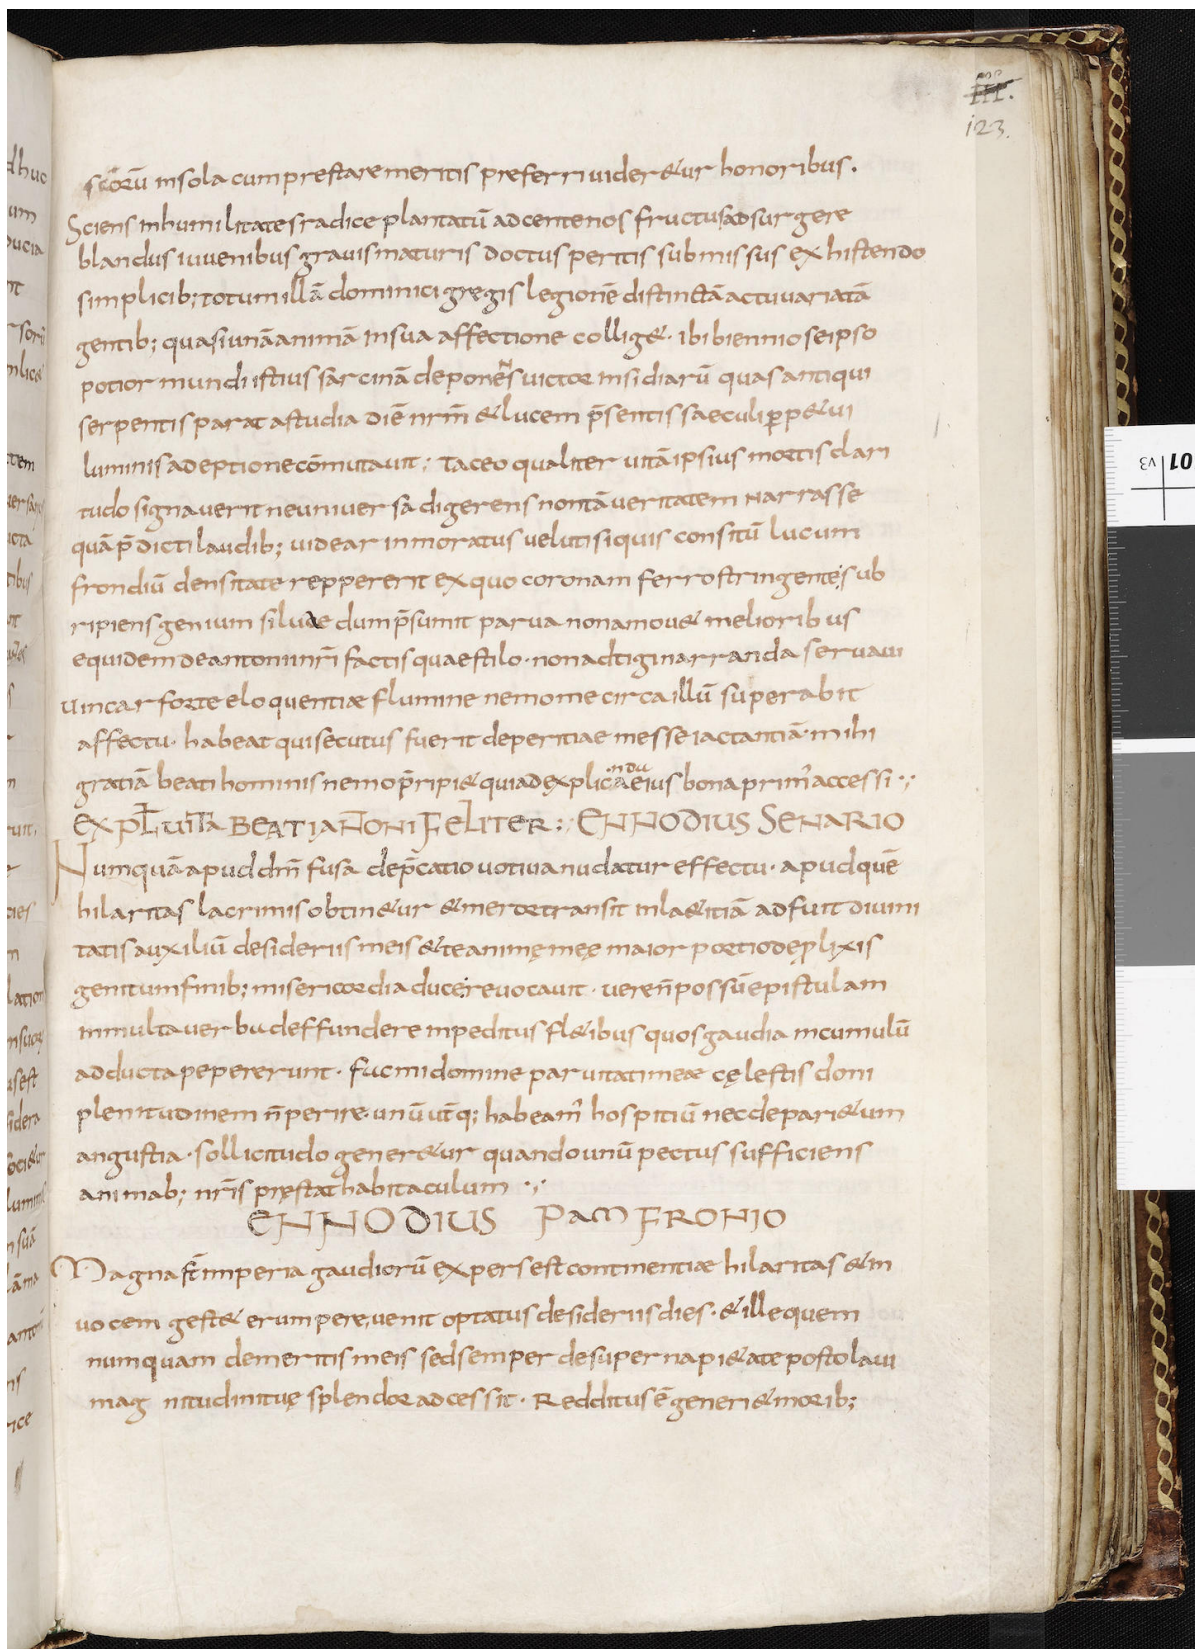 fff.
123.
scōrū insola cum prestare meritis preferri uider&ur honoribus.
Sciens inhumilitates radice plantatū ad centenos fructus adsurgere
blandus iuuenibus grauis maturis doctus peritis submissus exhistendo
simplicib; totum illā dominici gregis legionē distinctā actu uariatā
gentib; quasi unā animā insua affectione collig&. ibi biennio se ipso
potior mundi istius sarcinā deponeˢns uictor insidiarū quas antiqui
serpentis parat astudia diē nr̄m & lucem p̄sentis saeculi p̱p&ui
luminis adeptione cōmutauit; Taceo qualiter uitā ipsius mortis clari
tudo signauerit ne uniuersa digerens non tā ueritatem Narrasse
quā p̄dicti laudib; uidear inmoratus uelut siquis consitū lucum
frondiū densitate reppererit ex quo coronam ferro stringente sub
ripiens genium siluae dum p̄sumit parua non amou& melioribus
equidem de antoni nr̄i factis quae stilo. non adtigi narranda seruaui
Uincar forte eloquentiae flumine nemo me circa illū superabit
affectu. habeat qui secutus fuerit de peritiae messe iactantiā. mihi
gratiā beati hominis nemo p̄ripi& quia dexplicandaeius bona prim' accessi.;
EXPL UITA BEATI ANTONI FELITER:; ENNODIUS SENARIO
Numquā apud dm̄ fusa dep̄catio uotiua nudatur effectu. apud quē
hilaritas lacrimis obtin&ur & merore transit inla&itiā adfuit diuini
tatis auxiliū desideriis meis & te animę męę maior portio deplixis
genitum finib; misericordia duce reuocauit. uere n̄ possū epistulam
inmulta uerbu deffundere inpeditus fl&ibus quos gaudia incumulū
adducta pepererunt. fuc mi domine paruitati meae cęlestis doni
plenitudinem n̄ perire. unū utq; habeam' hospitiū nec de pari&um
angustia. sollicitudo gener&ur quando unū pectus sufficiens
animab; nr̄is pręstat habitaculum .;
ENNODIUS PAMFRONIO
Magna st̄ imperia gaudiorū expers est continentiae hilaritas & in
uocem gest& erumpere, uenit optatus desideriis dies. & ille quem
numquam de meritis meis sed semper de superna pi&ate postolaui
mag nitudini tuę splendor adcessit. Redditus ē generi & morib;